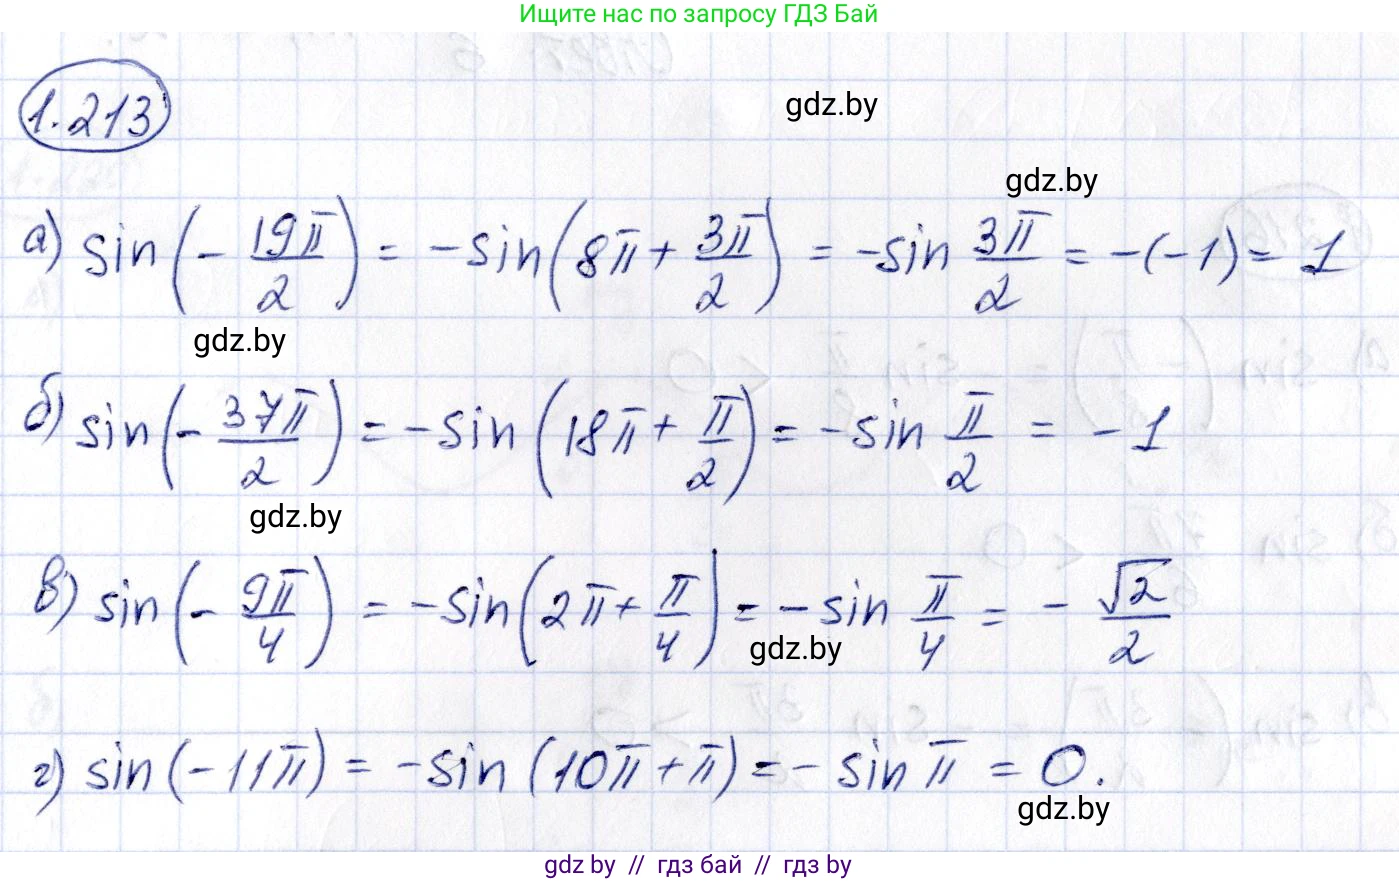 Ищите нас по запросу ГДЗ Бай
1.213
gdz.by
gdz.by
а) sin(-19π/2) = -sin(8π + 3π/2) = -sin 3π/2 = -(-1) = 1
gdz.by
б) sin(-37π/2) = -sin(18π + π/2) = -sin π/2 = -1
gdz.by
в) sin(-9π/4) = -sin(2π + π/4) = -sin π/4 = -√2/2
gdz.by
г) sin(-11π) = -sin(10π + π) = -sin π = 0.
gdz.by
gdz by // гдз бай // гдз by